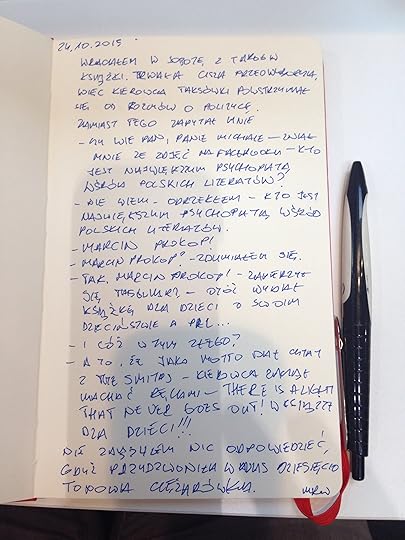 24.10.2015
WRACAŁEM W SOBOTĘ, Z TARGÓW
KSIĄŻKI. TRWAŁA CISZA PRZEDWYBORCZA,
WIĘC KIEROWCA TAKSÓWKI POWSTRZYMAŁ
SIĘ OD ROZMÓW O POLITYCE.
ZAMIAST TEGO ZAPYTAŁ MNIE
- CZY WIE PAN, PANIE MICHALE - ZNAŁ
MNIE ZE ZDJĘĆ NA FACEBOOKU - KTO
JEST NAJWIĘKSZYM PSYCHOPATĄ
WŚRÓD POLSKICH LITERATÓW?
- NIE WIEM - ODRZEKŁEM - KTO JEST
NAJWIĘKSZYM PSYCHOPATĄ WŚRÓD
POLSKICH LITERATÓW.
- MARCIN PROKOP!
- MARCIN PROKOP? - ZDUMIAŁEM SIĘ.
- TAK, MARCIN PROKOP! -
SIĘ - OTÓŻ WYDAŁ
KSIĄŻKĘ DLA DZIECI O SWOIM
DZIECIŃSTWIE A PRL...
- I CÓŻ W TYM ZŁEGO?
- A TO, ŻE JAKO MOTTO DAŁ CYTAT
Z THE SMITHS - KIEROWCA ZACZĄŁ
MACHAĆ RĘKAMI - THERE IS A LIGHT
THAT NEVER GOES OUT! W KSIĄŻCE
DLA DZIECI!!!
NIE ZDĄŻYŁEM NIC ODPOWIEDZIEĆ,
GDYŻ PRZYDZWONIŁA W NAS DZIESIĘCIO
TONOWA CIĘŻARÓWKA.